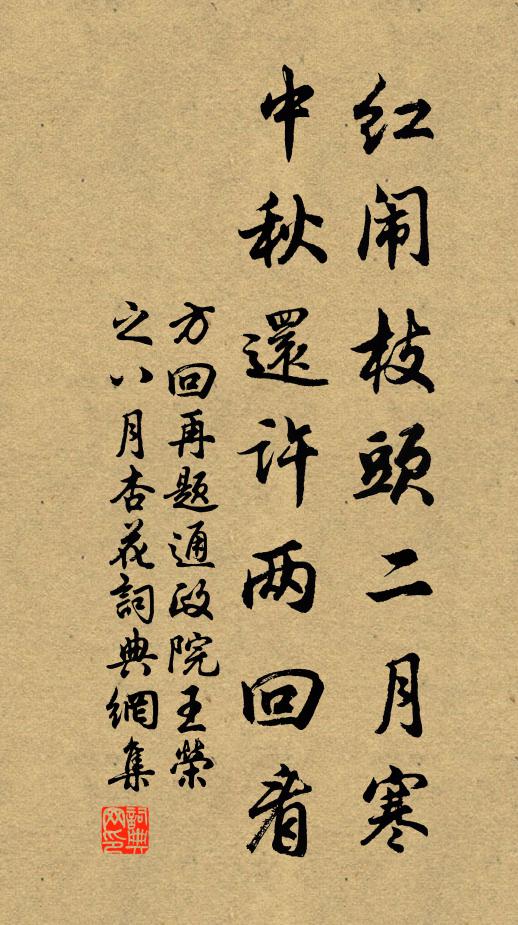 红闹枝頭二月寒
中秋還許两回看
方回再题通政院王榮
之八月杏花詞典網集
詞典
网印